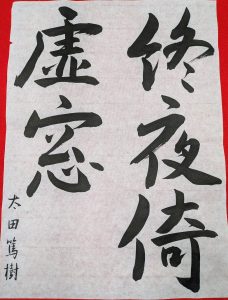 終夜倚
虚窓
太田篤樹